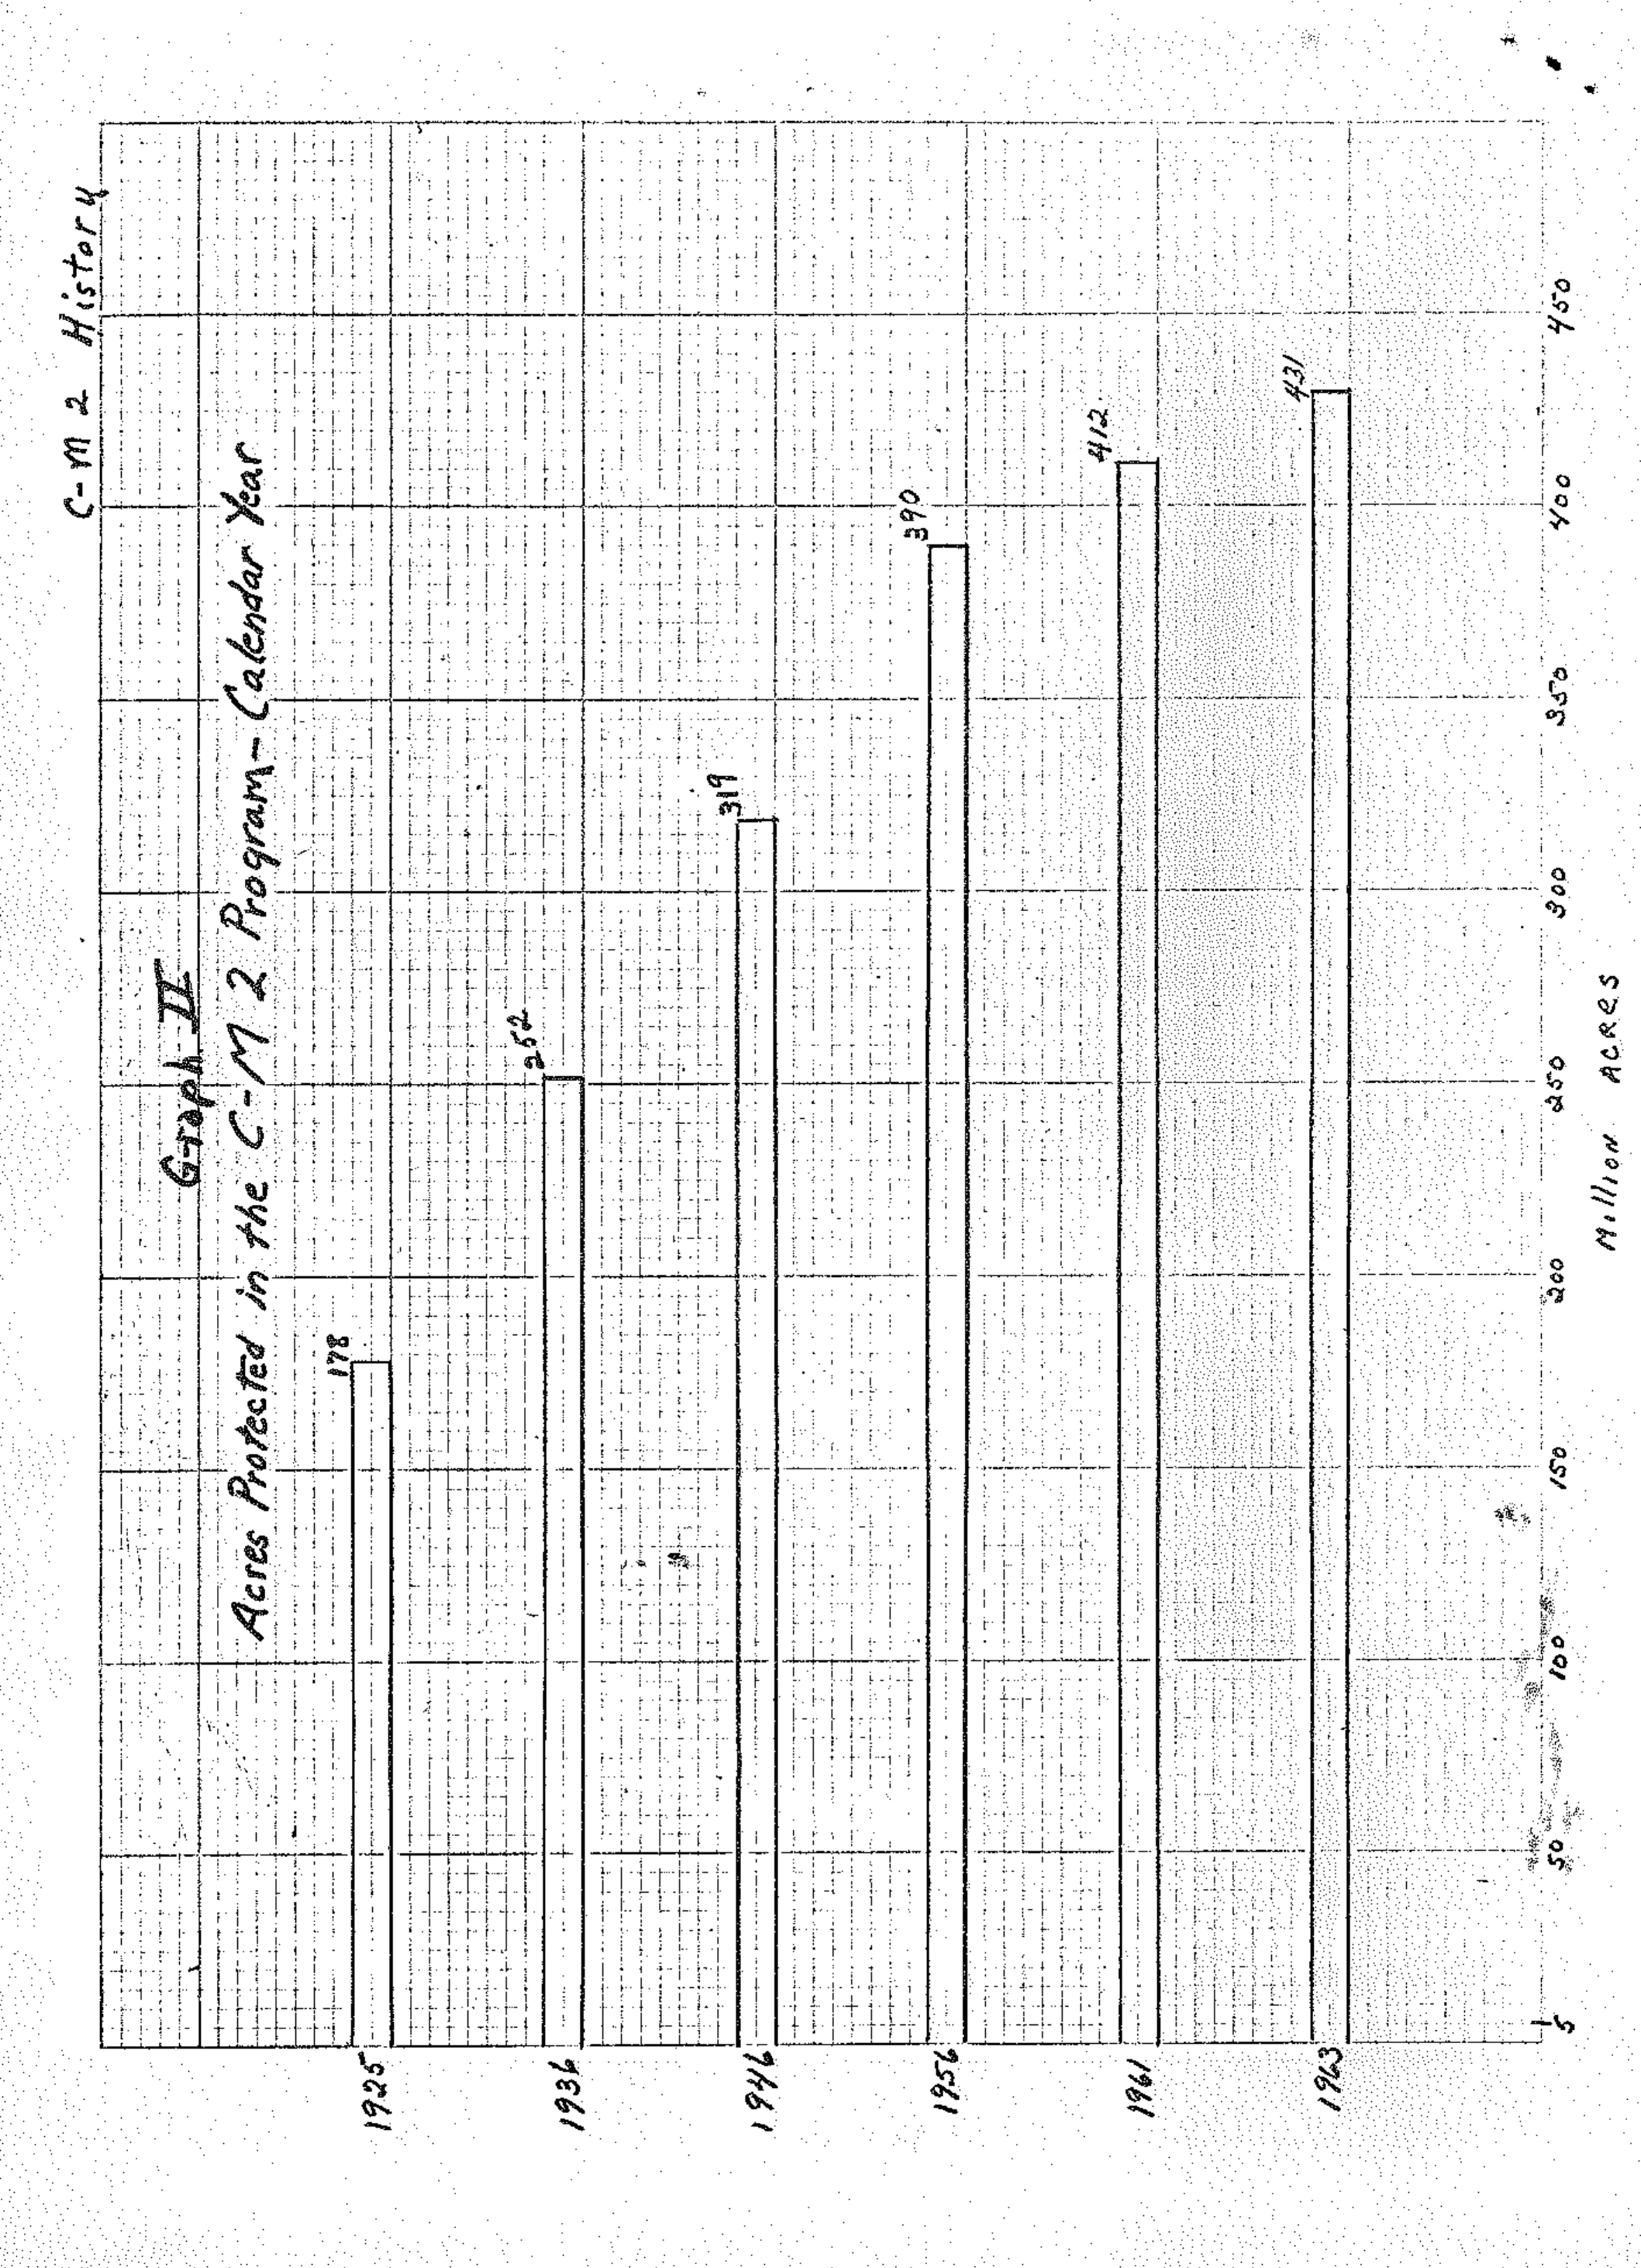 C-M 2 History
Graph II
Acres Protected in the C-M 2 Program- Calendar Year
1925 178
1936 252
1946 319
1956 390
1961 412
1963 431
5 50 100 150 200 250 300 350 400 450
Million Acres